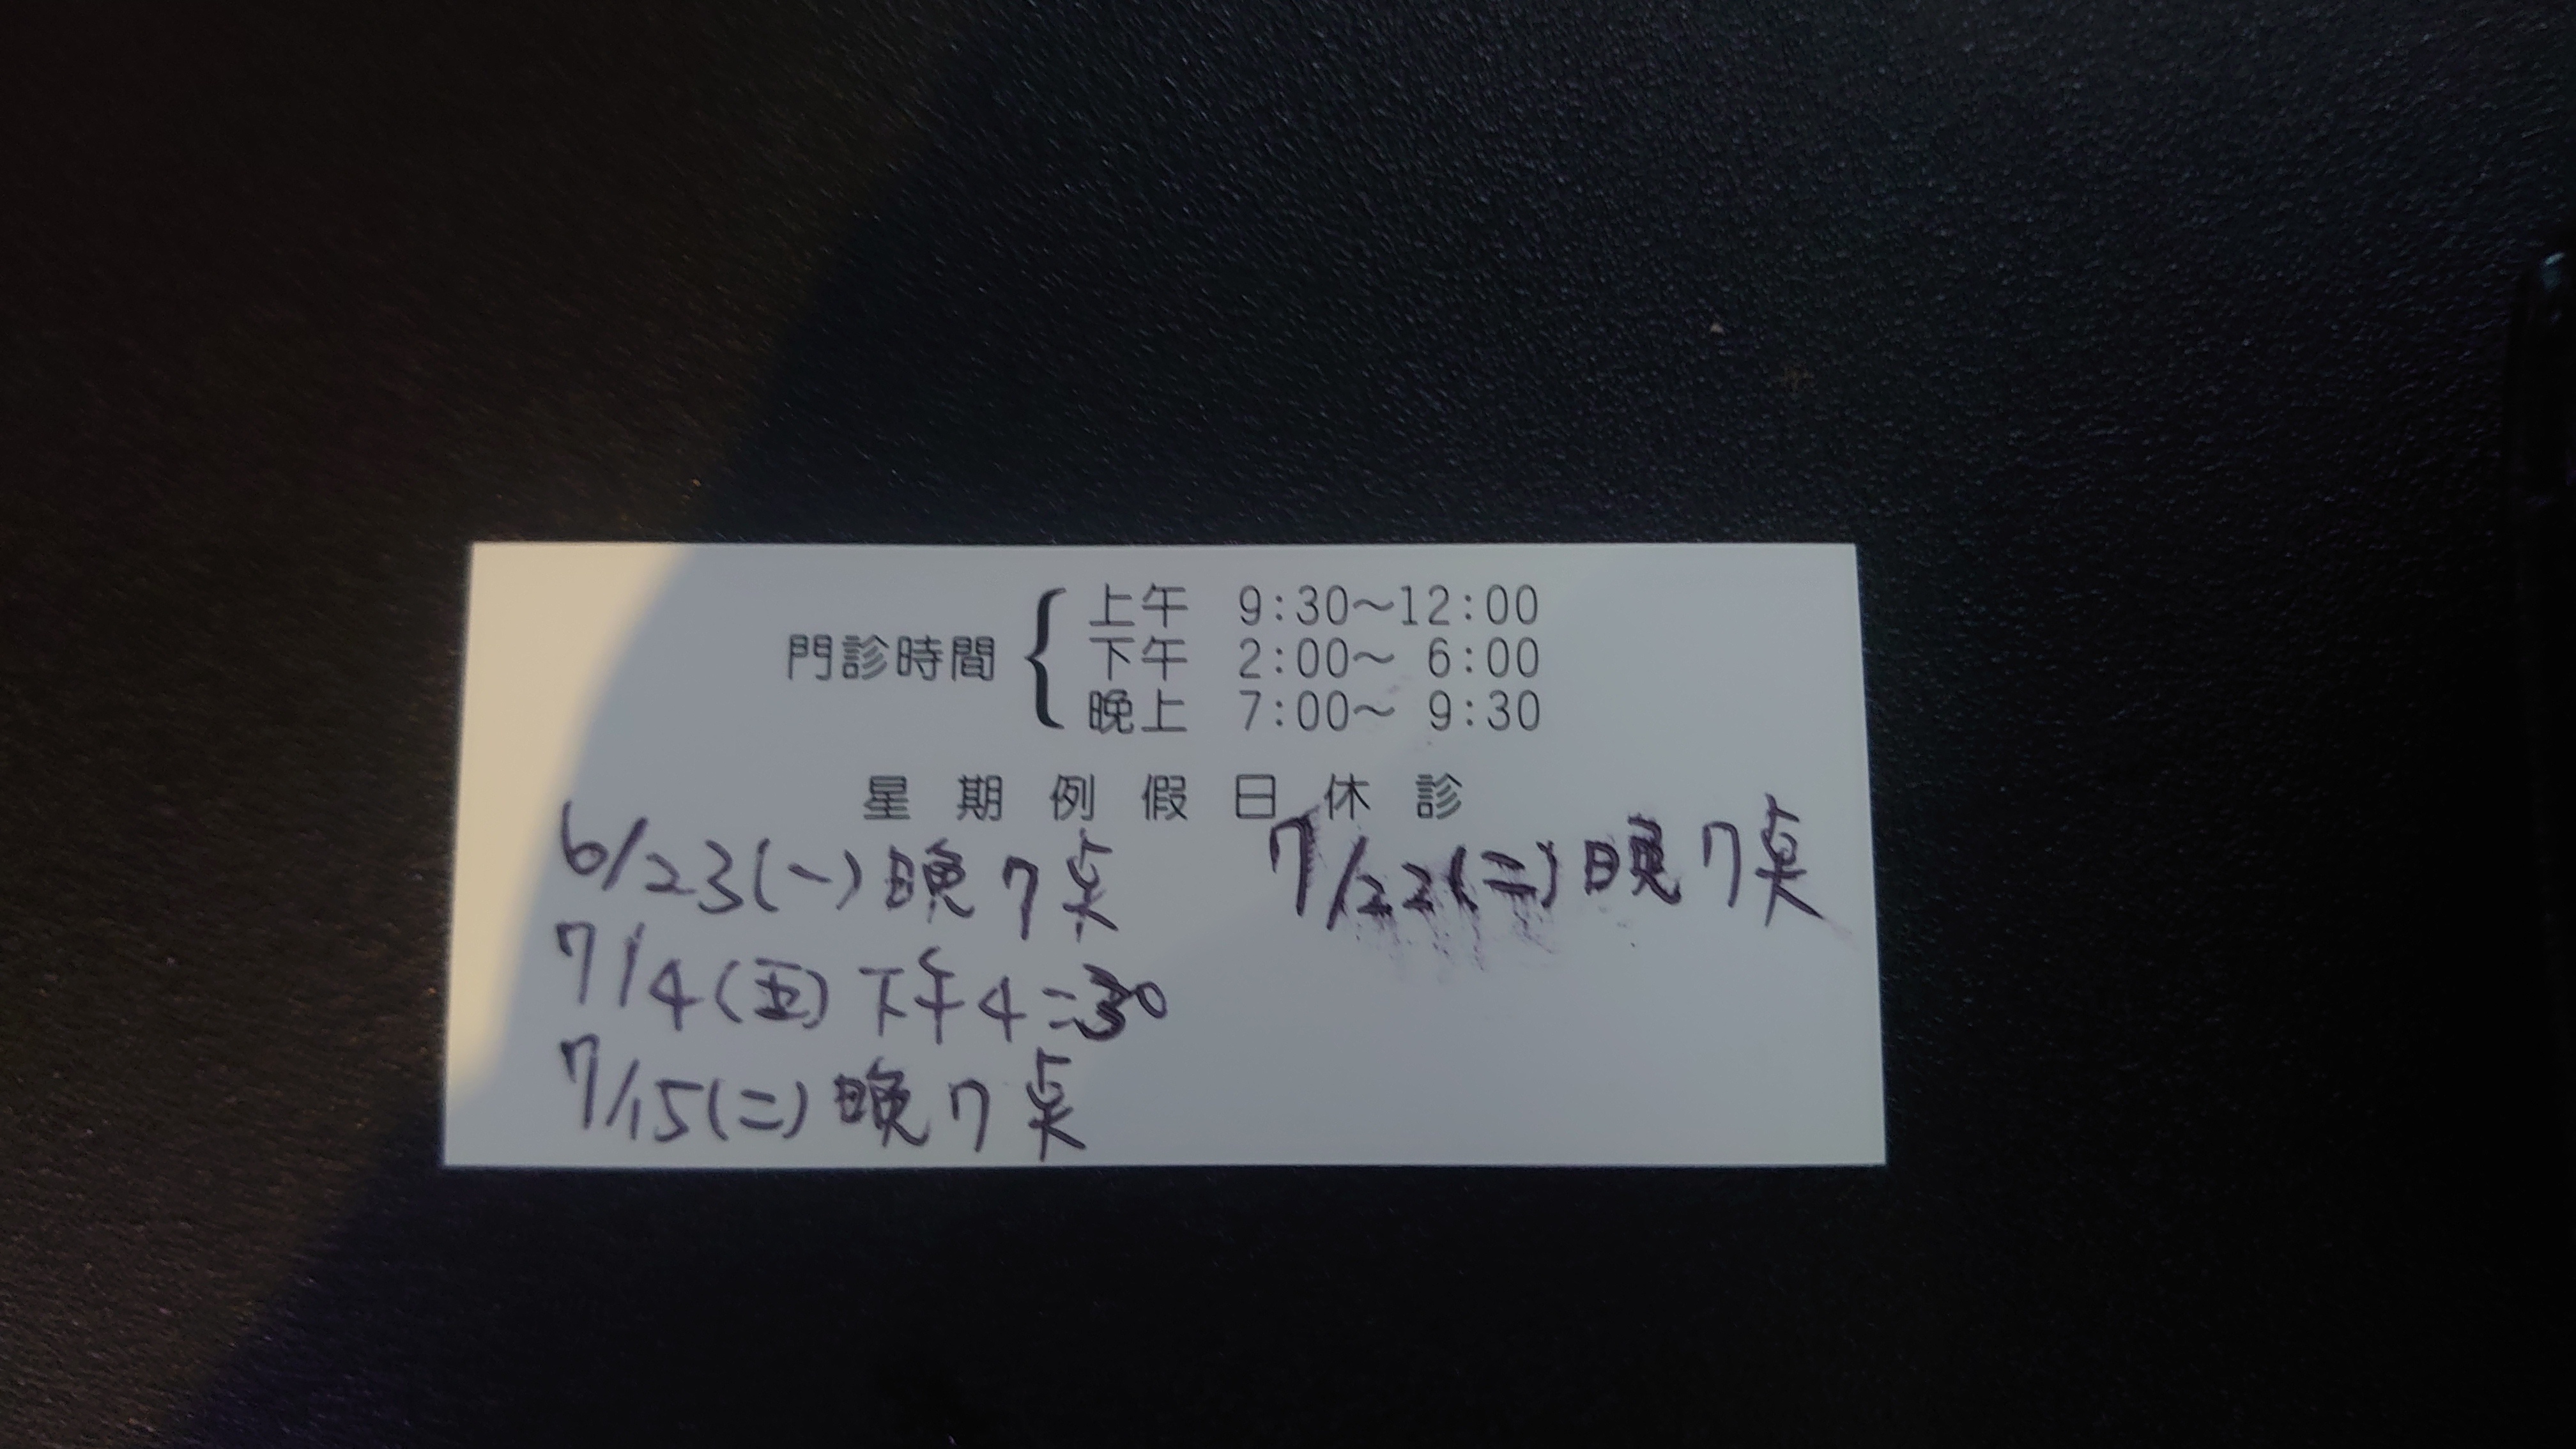 門診時間
上午 9:30～12:00
下午 2:00～ 6:00
晚上 7:00～ 9:30
星期例假日休診
6/23(一)晚7点
7/4(五)下午4:30
7/15(二)晚7点
7/22(二)晚7点